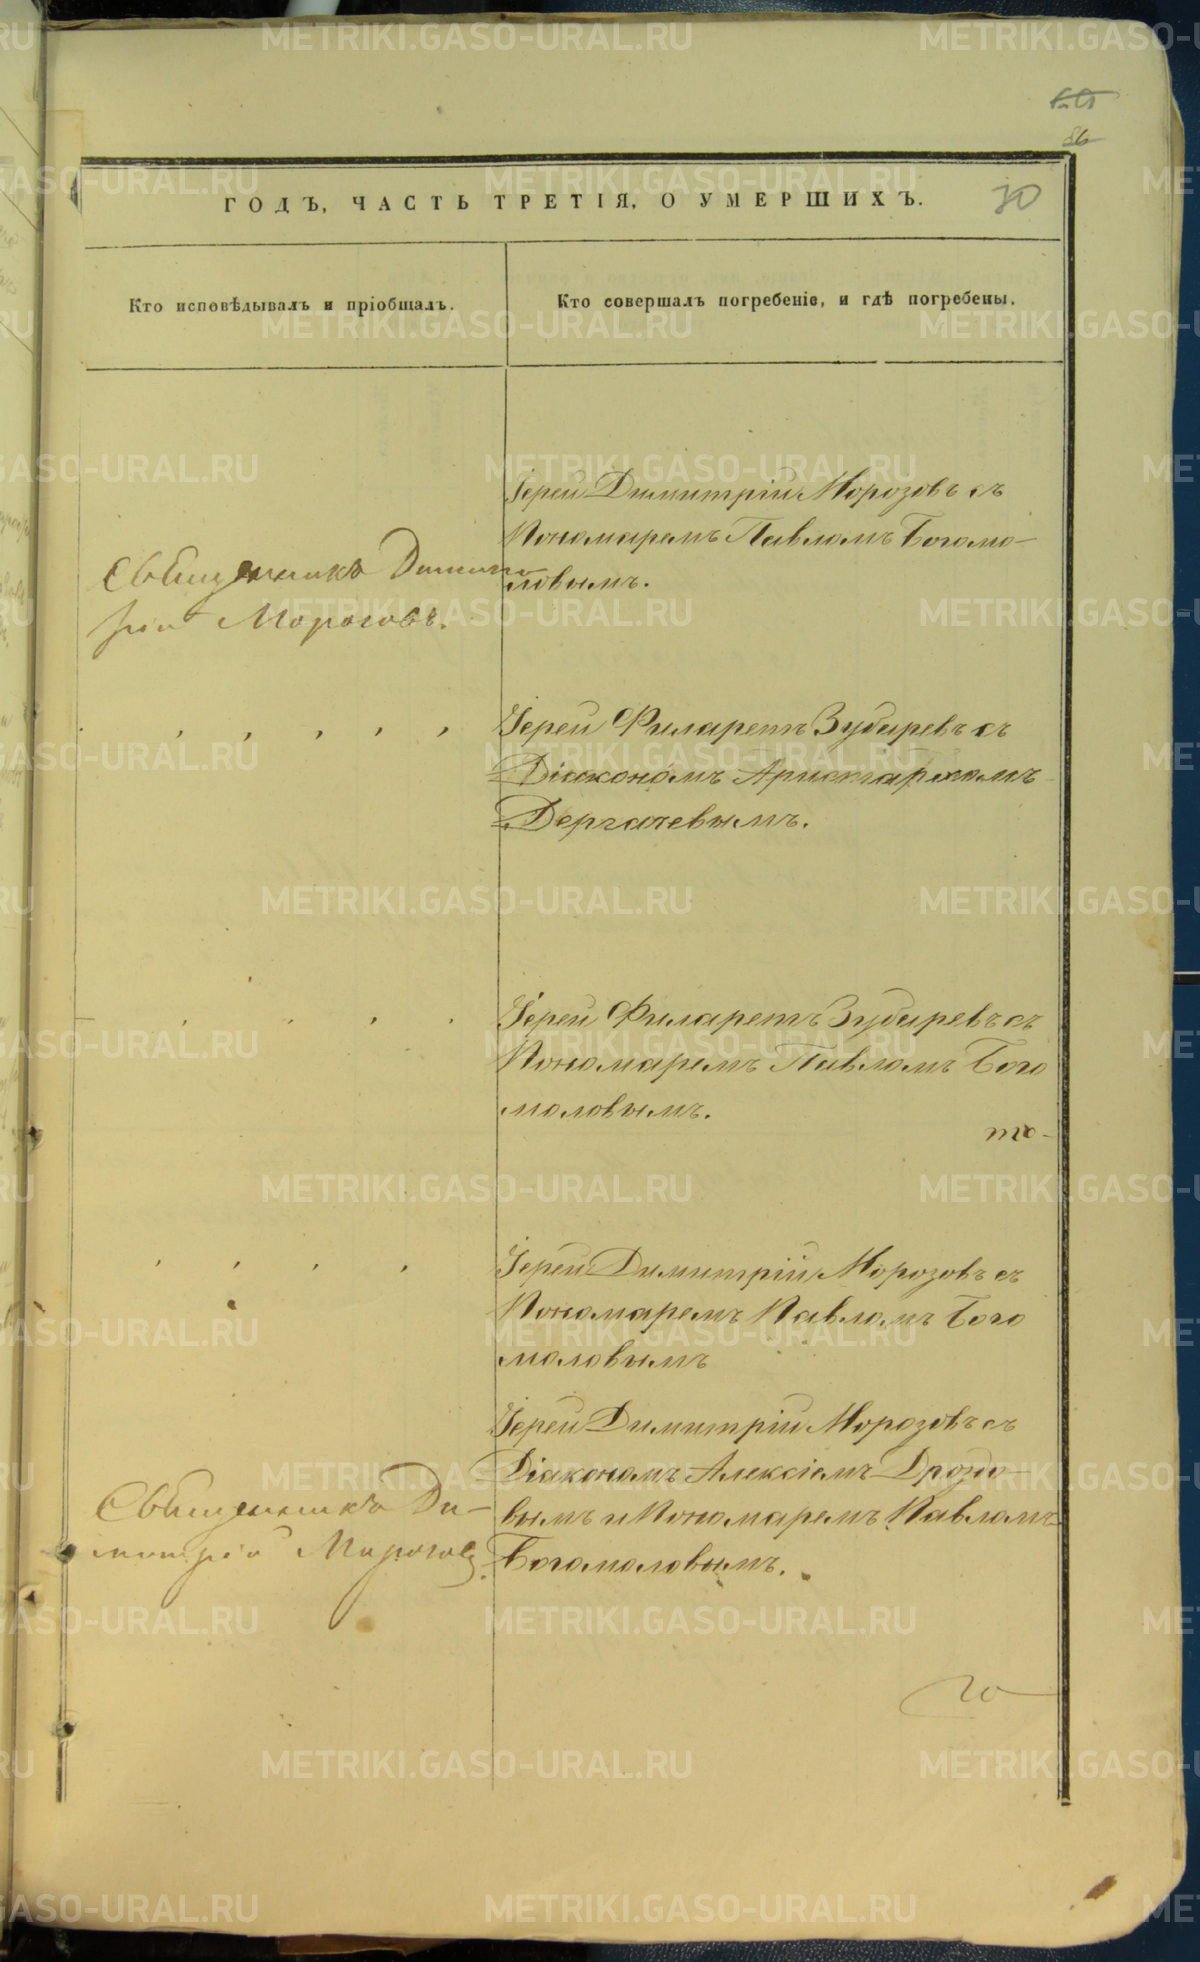 86
ГОДЪ, ЧАСТЬ ТРЕТІЯ, О УМЕРШИХЪ.
30
Кто исповѣдывалъ и пріобщалъ.
Кто совершалъ погребеніе, и гдѣ погребены.
Іерей Димитрій Морозовъ съ
Пономаремъ Павломъ Богомо-
ловымъ.
Священникъ Димит
рій Морозовъ.
Іерей Филаретъ Зубаревъ съ
Діакономъ Аристархомъ
Дергачевымъ.
Іерей Филаретъ Зубаревъ съ
Пономаремъ Павломъ Бого
моловымъ.
то-
Іерей Димитрій Морозовъ съ
Пономаремъ Павломъ Бого
моловымъ
Іерей Димитрій Морозовъ съ
Діакономъ Алексіемъ Дроздо-
вымъ и Пономаремъ Павломъ
Богомоловымъ.
Священникъ Ди-
митрій Морозовъ.
METRIKI.GASO-URAL.RU